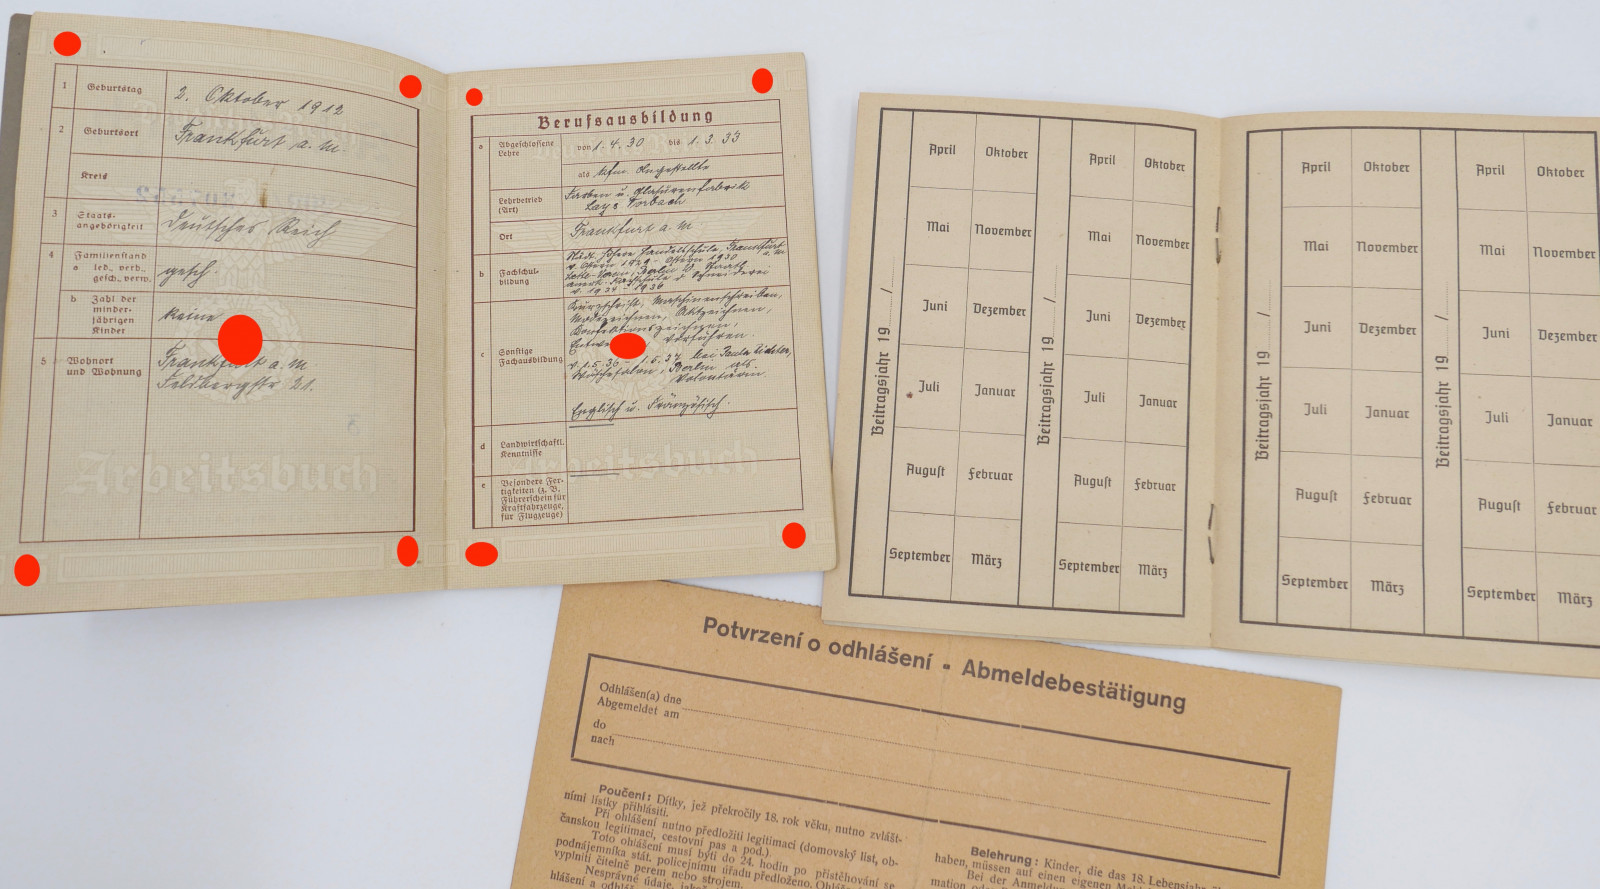 1 Geburtstag 2. Oktober 1912
2 Geburtsort Frankfurt a. M.
Kreis
3 Staats-
angehörigkeit Deutsches Reich
4 Familienstand
a led., verb.,
gesch., verw. gesch.
b Zahl der
minder-
jährigen
Kinder keine
5 Wohnort
und Wohnung Frankfurt a. M
Feldbergstr 21.
Arbeitsbuch
Berufsausbildung
a Abgeschlossene
Lehre von 1. 4. 30 bis 1. 3. 33
als kfm. Angestellte
Lehrbetrieb
(Art) Farben u. Glasurenfabrik
Ort Frankfurt a. M
b Fachschul-
bildung
v. 1934 – 1936
c Sonstige
Fachausbildung
Kurzschrift, Maschinenschreiben,
Modezeichnen, Aktzeichnen,
Konfektionszeichnen,
vorführen.
v. 1. 5. 36 – 1. 5. 37 bei Paula
Wäschesalon, Berlin als
Volontärin.
Englisch u. Französisch.
d Landwirtschaftl.
Kenntnisse
e Besondere Fer-
tigkeiten (z. B.
Führerschein für
Kraftfahrzeuge,
für Flugzeuge)
Arbeitsbuch
Beitragsjahr 19 /
April Oktober
Mai November
Juni Dezember
Juli Januar
August Februar
September März
Beitragsjahr 19 /
April Oktober
Mai November
Juni Dezember
Juli Januar
August Februar
September März
Beitragsjahr 19 /
April Oktober
Mai November
Juni Dezember
Juli Januar
August Februar
September März
Beitragsjahr 19 /
April Oktober
Mai November
Juni Dezember
Juli Januar
August Februar
September März
Potvrzení o odhlášení - Abmeldebestätigung
Odhlášen(a) dne
Abgemeldet am
do
nach
Poučení: Dítky, jež překročily 18. rok věku, nutno zvlášt-
ními lístky přihlásiti.
Při ohlášení nutno předložiti legitimaci (domovský list, ob-
čanskou legitimaci, cestovní pas a pod.)
Toto ohlášení musí býti do 24. hodin po přistěhování se
podnájemníka stát. policejnímu úřadu předloženo.
vyplniti čitelně perem nebo strojem.
Nesprávné údaje,
hlášení a
Belehrung: Kinder, die das 18. Lebensjahr
haben, müssen auf einen eigenen
Bei der Anmeldung